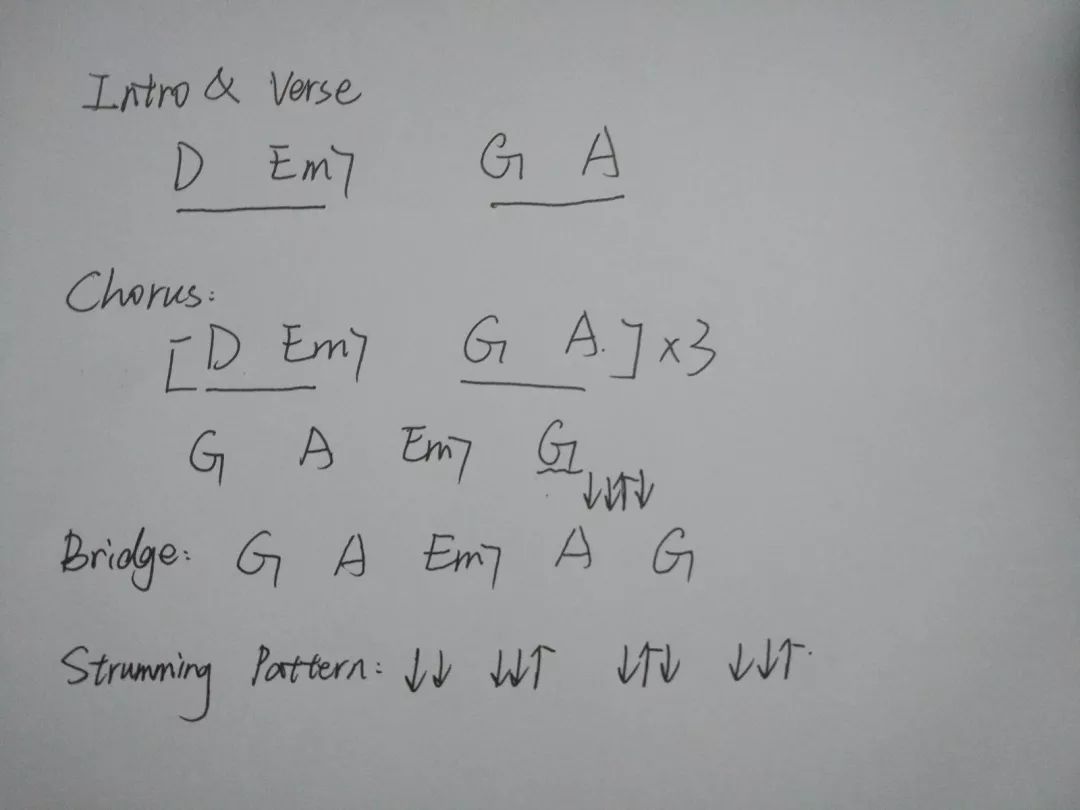 Intro & Verse
D Em7 G A
Chorus:
[D Em7 G A.] ×3
G A Em7 G
↓↓↑↓
Bridge: G A Em7 A G
Strumming Pattern: ↓↓ ↓↓↑ ↓↑↓ ↓↓↑